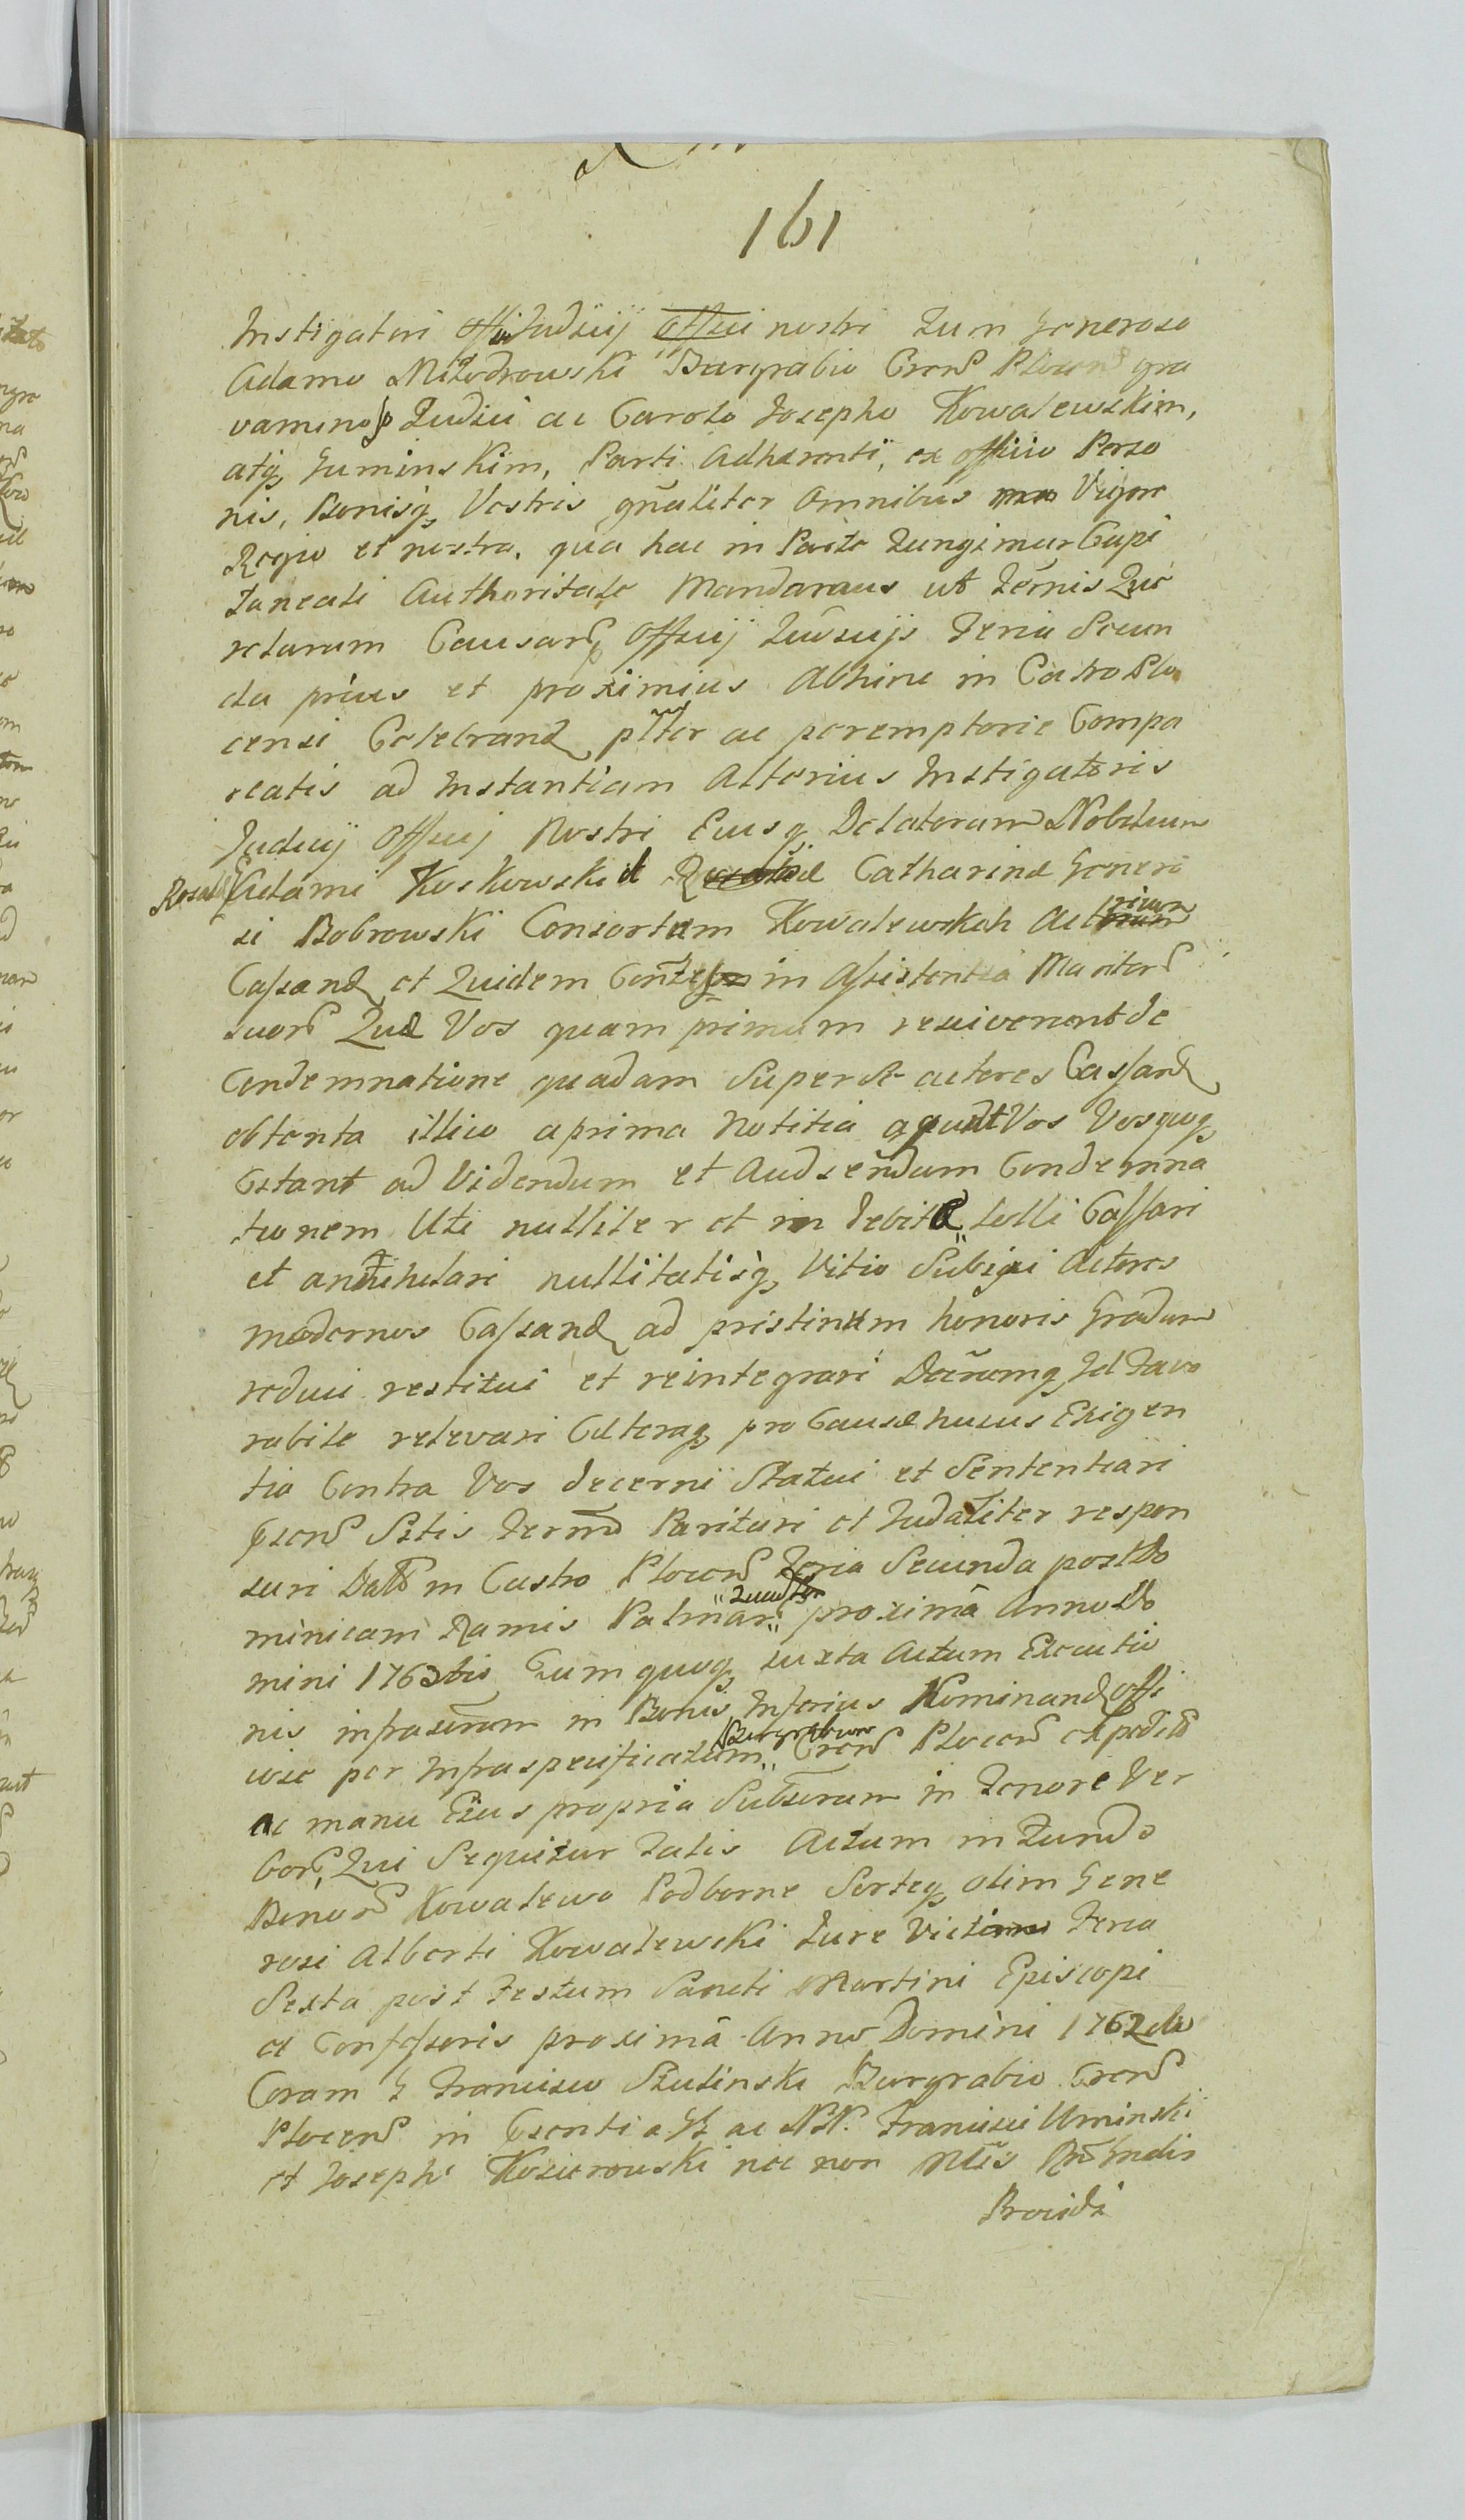 161
Instigatori Judicij nostri tum Generoso
Adamo Młodzowski Burgrabio Crens Plocens gra
vamino Judicii ac Carolo Josepho Kowalewskim,
atq Guminskim, Parti Adhærenti, ex officio Perso
nis, Bonisq Vestris gñaliter omnibus Vigore
Regio et nostra, qua hac in Parte fungimur Capi
taneali Authoritate Mandamus ut Termis Que
relarum Causarq Officij Judicijs Feria Secun
da prius et proximius Abhinc in Castro Plo
censi Celebrand pltter ac peremptorie Compa
reatis ad Instantiam Alterius Instigatoris
Judicij Officij Nostri Eiusq Delatorum Nobilium
Rosalæ Adami Koskowski et Catharinæ Genero
si Bobrowski Consortum Kowalewskch Actorum
Cassand et Quidem in Assistentia Maritor
suor Quæ Vos quam primum resciverunt de
Condemnatione quadam Super se actores Cassand
obtenta illico a prima Notitia Vos Vosquoq
Citant ad Videndum et Audiendum Condemna
tionem Uti nulliter et in debite tolli Cassari
et annihilari nullitatisq Vitio Subijci Actores
modernos Cassand ad pristinum honoris Gradum
reduci restitui et reintegrari Favo
rabile relevari Cæteraq pro Causæ huius Exigen
tia Contra Vos decerni Statui et Sententiari
Sitis Termo Parituri et Judaliter respon
suri Datt in Castro Plocens Feria Secunda post Do
minicam Ramis Palmar proximâ Anno Do
mini 1763tio Cum quoq iuxta Actum Executio
nis infrascrum in Bonis Inferius Nominand offi
Burgrabium
ciose per Infraspecificatum Crens Plocens expedito
ac manu Eius propria Subscrum in Tenore Ver
bor, Qui Sequitur Talis Actum in Fundo
Bonor Kowalewo Podborne Sorteq olim Gene
rosi Alberti Kowalewski Jure Feria
Sexta post Festum Sancti Martini Episcopi
et Confessoris proximâ Anno Domini 1762do
Coram G Francisco Szulinski Burgrabio Crens
Plocens in GG ac NN. Francisci Uminski
et Josephi Kosicrowski nec non
Providi